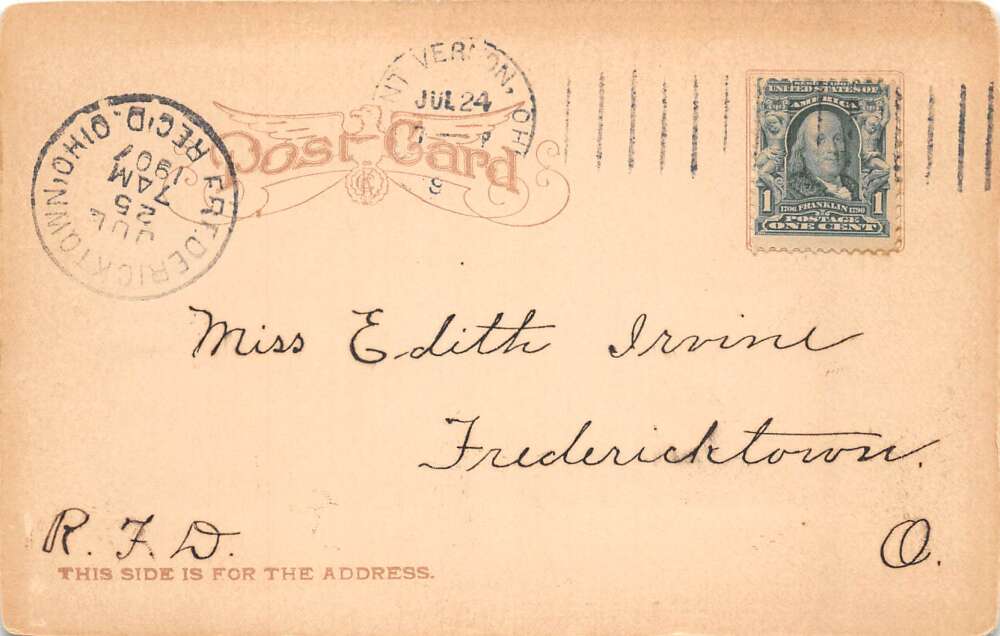 Post Card
NT VERNON, OH
JUL 24
9
FREDERICKTOWN, OHIO
REC'D.
JUL
25
7 AM
1907
UNITED STATES OF
AMERICA
1 1706 FRANKLIN 1790 1
POSTAGE
ONE CENT
Miss Edith Irvine
Fredericktown.
R. F. D. O.
THIS SIDE IS FOR THE ADDRESS.